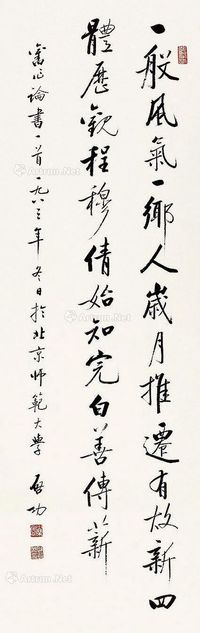 一般風氣一鄉人歲月推遷有故新四
體歷觀程穆倩始知完白善傳薪
舊作論書一首一九八三年冬日於北京師範大學 啓功